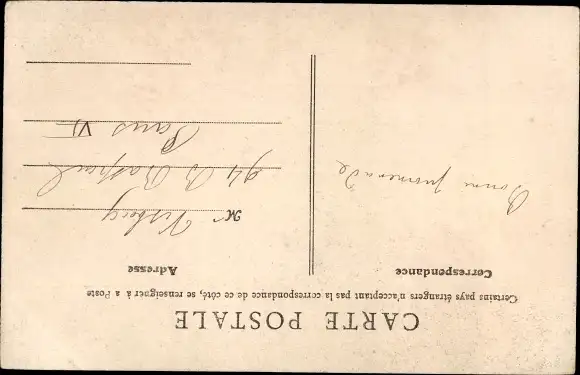 CARTE POSTALE
Certains pays étrangers n'acceptant pas la correspondance de ce côté, se renseigner à a Poste
Correspondance
Adresse
Bonne promenade
Mr
94 B Raspail
Paris VI